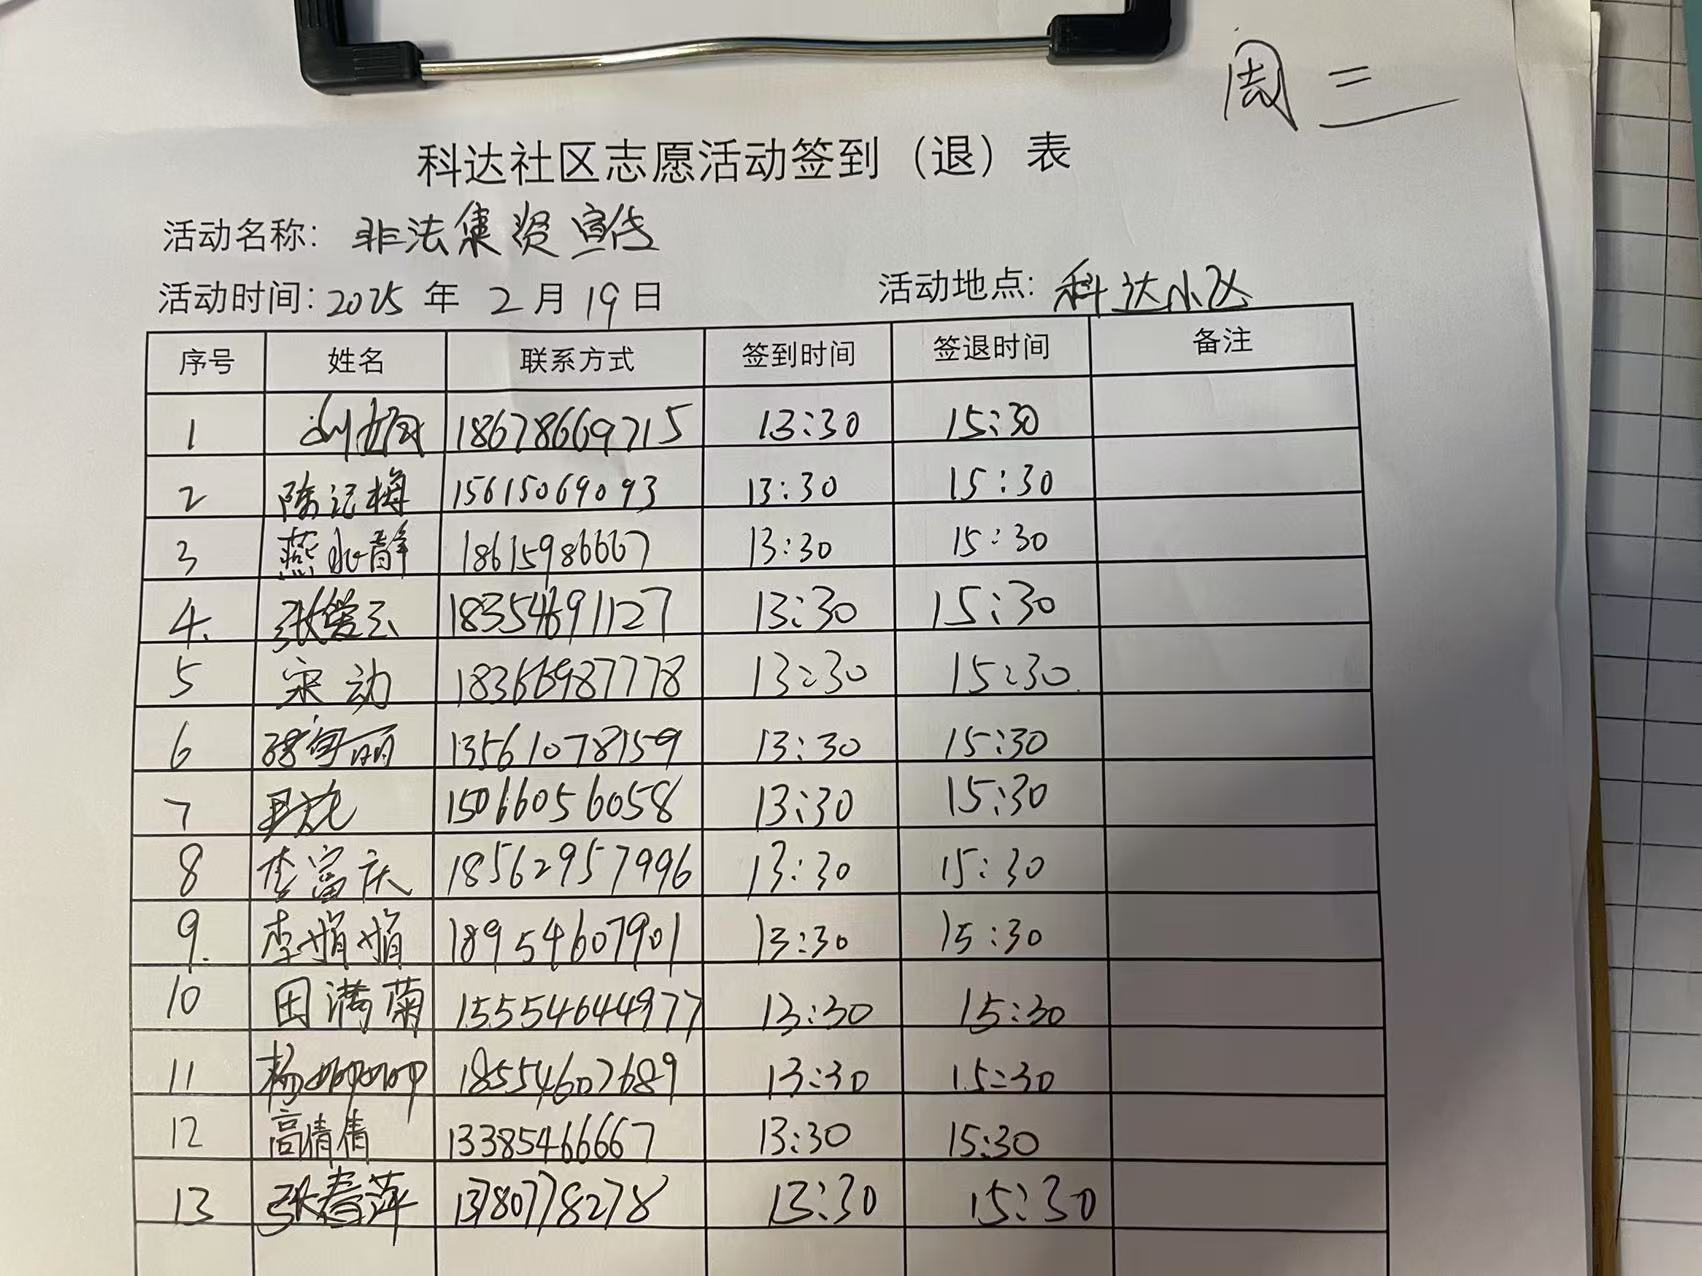 周三
科达社区志愿活动签到（退）表
活动名称：非法集资宣传
活动时间：2025年2月19日 活动地点：科达小区
序号 姓名 联系方式 签到时间 签退时间 备注
1 18678669715 13:30 15:30
2 陈记梅 15615069093 13:30 15:30
3 燕永静 18615986667 13:30 15:30
4. 张爱云 18354691127 13:30 15:30
5 宋动 18366987778 13:30 15:30
6 13561078159 13:30 15:30
7 15066056058 13:30 15:30
8 李富庆 18562957996 13:30 15:30
9. 李娟娟 18954607901 13:30 15:30
10 田满菊 15554644977 13:30 15:30
11 杨 18554607689 13:30 15:30
12 高倩倩 13385466667 13:30 15:30
13 张春萍 13780778278 13:30 15:30